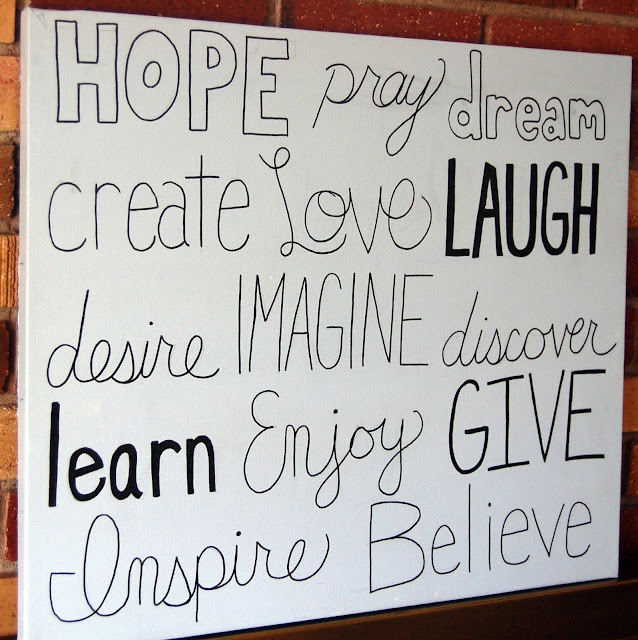 HOPE pray dream
create Love LAUGH
desire IMAGINE discover
learn Enjoy GIVE
Inspire Believe